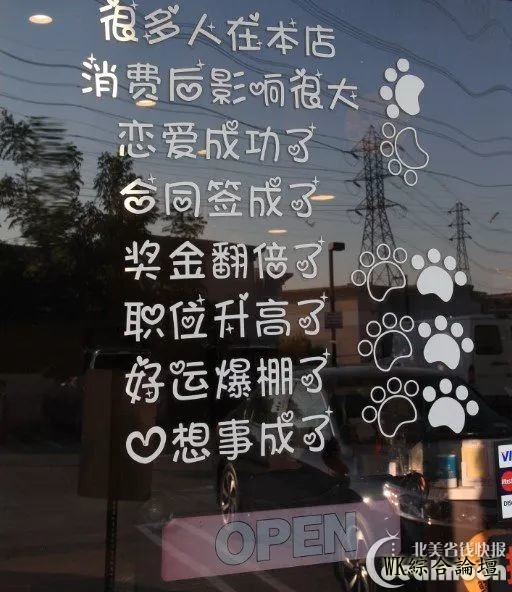 很多人在本店
消费后影响很大
恋爱成功了
合同签成了
奖金翻倍了
职位升高了
好运爆棚了
想事成了
OPEN
北美省钱快报
WK綜合論壇